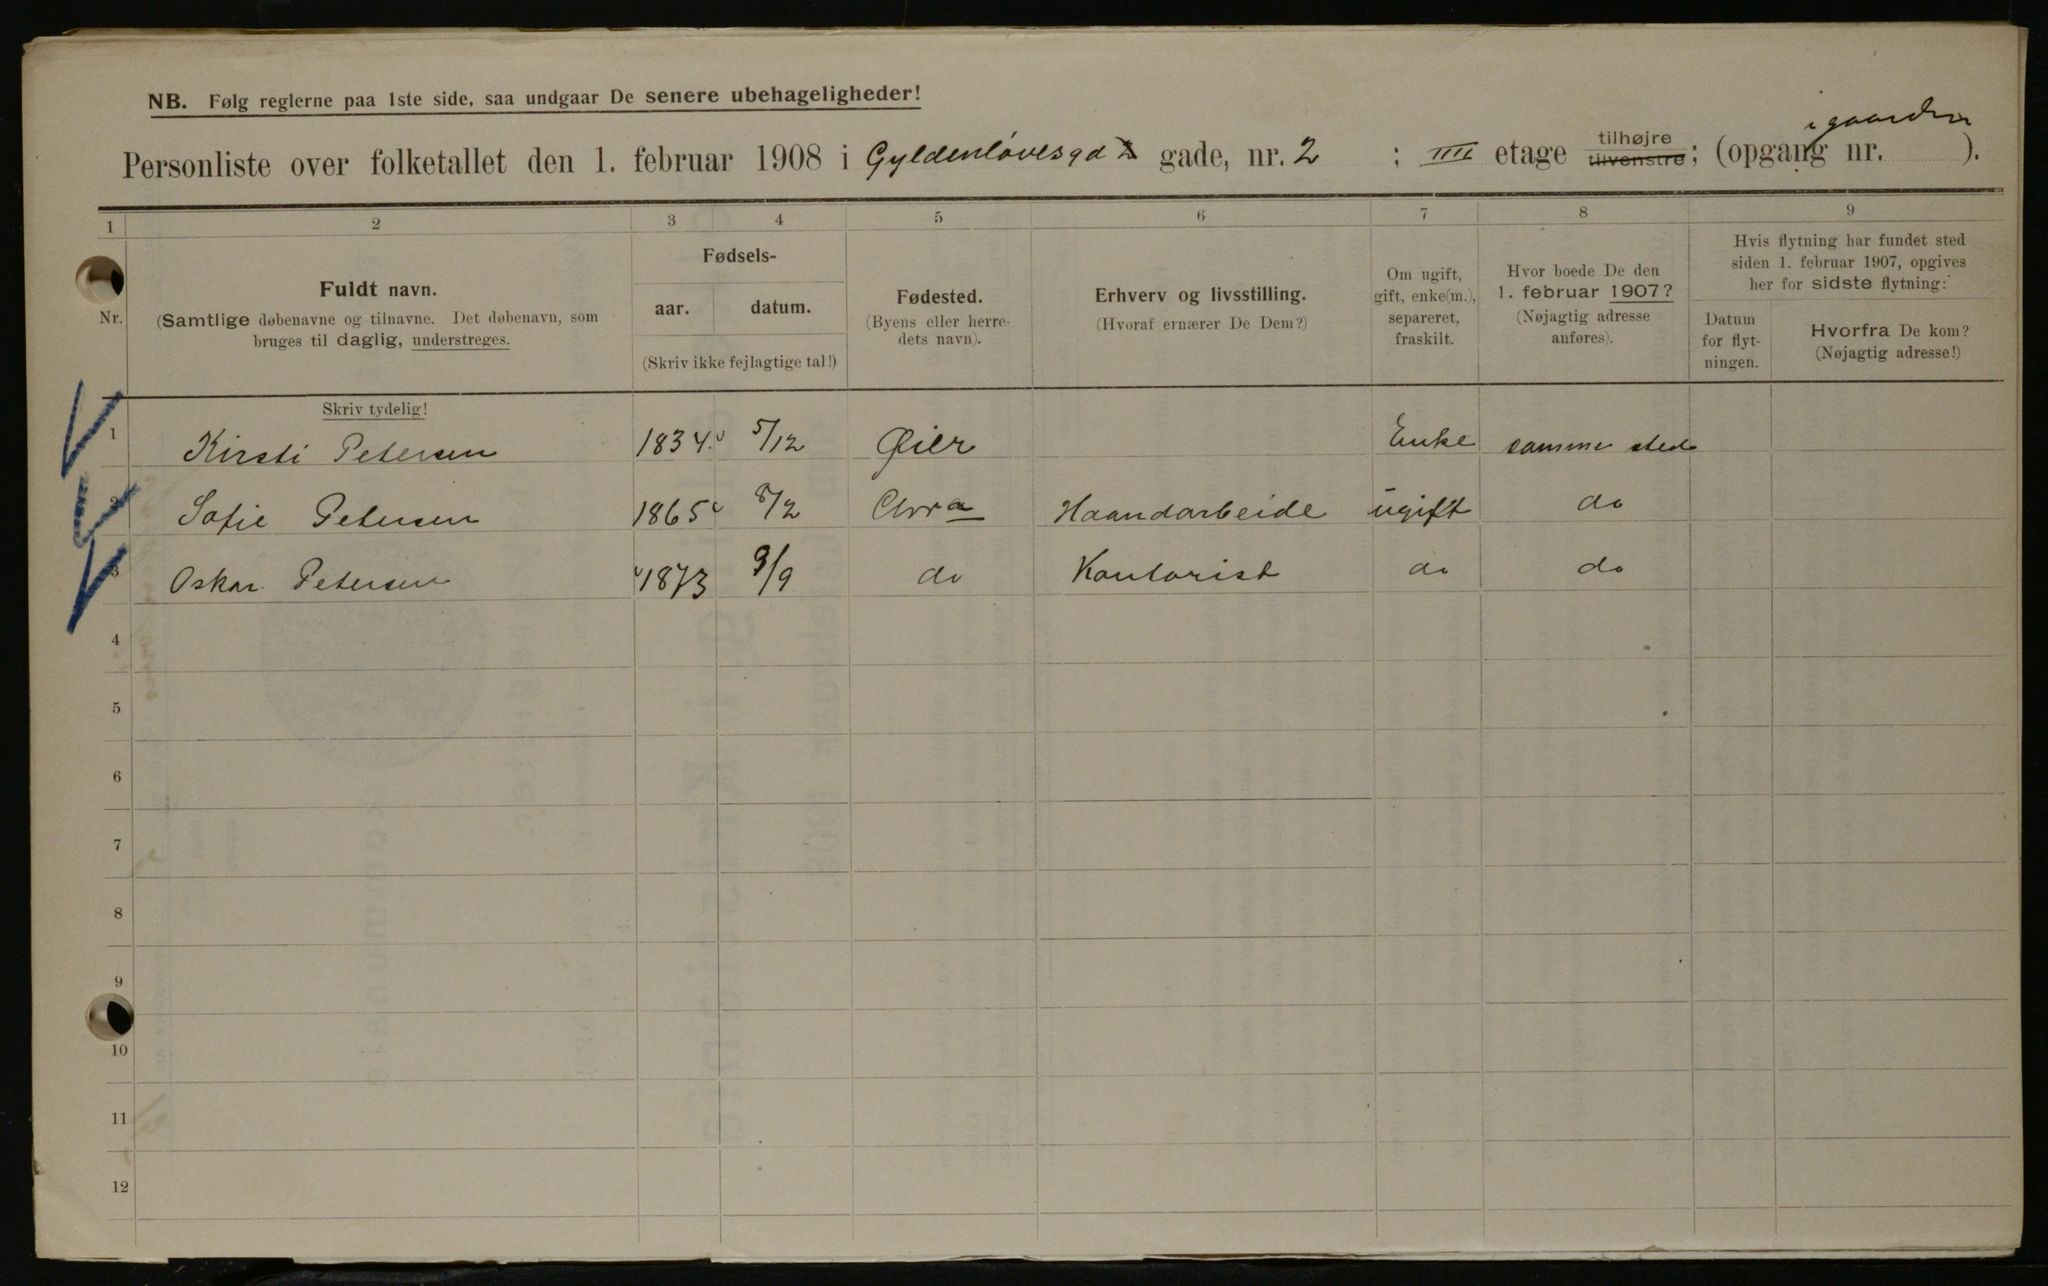 NB. Følg reglerne paa 1ste side, saa undgaar De senere ubehageligheder!
i gaarden
Personliste over folketallet den 1. februar 1908 i Gyldenløvesgd 2 gade, nr. 2 ; IIII etage tilhøjre tilvenstre; (opgang nr. ).
1 2 3 4 5 6 7 8 9
Nr.
Fuldt navn.
(Samtlige døbenavne og tilnavne. Det døbenavn, som
bruges til daglig, understreges.
Skriv tydelig!
Fødsels-
aar. datum.
(Skriv ikke fejlagtige tal!)
Fødested.
(Byens eller herre-
dets navn).
Erhverv og livsstilling.
(Hvoraf ernærer De Dem?)
Om ugift,
gift, enke(m.),
separeret,
fraskilt.
Hvor boede De den
1. februar 1907?
(Nøjagtig adresse
anføres).
Hvis flytning har fundet sted
siden 1. februar 1907, opgives
her for sidste flytning:
Datum
for flyt-
ningen.
Hvorfra De kom?
(Nøjagtig adresse!)
1 Kirsti Petersen 1834. 5/12 Øier Enke samme sted
2 Sofie Petersen 1865 8/2 Chra Haandarbeide ugift do
3 Oskar Petersen 1873 9/9 do Kontorist do do
4
5
6
7
8
9
10
11
12